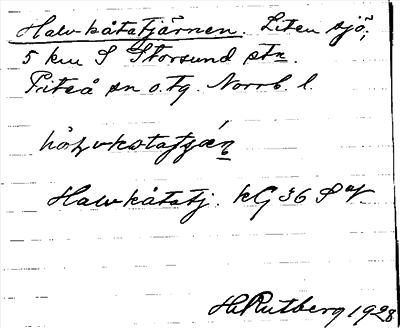 Halv-kåtatjärnen. Liten sjö,
5 km S Storsund stn.
Piteå sn o. tg. Norrb. l.
Halv-kåtatj. kG 36 S
H. Rutberg 1928